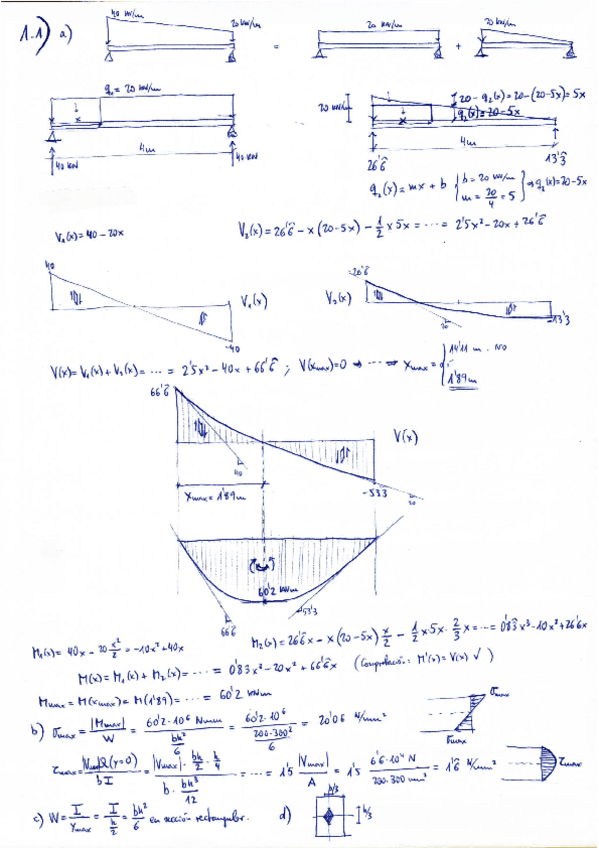 1.1) a)
40 kN/m
20 kN/m
=
20 kN/m
+
20 kN/m
q₁ = 20 kN/m
x
4m
40 kN
40 kN
20 kN/m
20 - q₂(x) = 20 - (20-5x) = 5x
q₂(x) = 20-5x
x
4m
26'6̂
13'3̂
q₂(x) = mx + b { b = 20 kN/m
m = 20/4 = 5 } ⇒ q₂(x) = 20-5x
V₁(x) = 40 - 20x
V₂(x) = 26'6̂ - x(20-5x) - 1/2 x 5x = ... = 2'5x² - 20x + 26'6̂
40
V₁(x)
-40
26'6̂
V₂(x)
20
-13'3
V(x) = V₁(x) + V₂(x) = ... = 2'5x² - 40x + 66'6̂ ; V(xmax) = 0 → ... → xmax = { 14'11 m. NO
1'89 m
66'6̂
V(x)
40
xmax = 1'89m
-53'3
20
60'2 kNm
66'6
53'3
M₁(x) = 40x - 20 x²/2 = -10x² + 40x
M₂(x) = 26'6̂x - x(20-5x) x/2 - 1/2 x 5x · 2/3 x = ... = 0'83̂x³ - 10x² + 26'6x
M(x) = M₁(x) + M₂(x) = ... = 0'83x³ - 20x² + 66'6̂x (Comprobación: M'(x) = V(x) √)
Mmax = M(xmax) = M(1'89) = ... = 60'2 kNm
b) σmax = |Mmax|/W = 60'2·10⁶ Nmm / (bh²/6) = 60'2·10⁶ / (200·300²/6) = 20'06 N/mm²
σmax
σmax
τmax = |Vmax|Ω(y=0) / bI = |Vmax| · bh/2 · h/4 / (b · bh³/12) = ... = 1'5 |Vmax|/A = 1'5 6'6·10⁴ N / 200·300 mm² = 1'6̂ N/mm²
τmax
c) W = I/ymax = I/(h/2) = bh²/6 en sección rectangular.
d)
b/3
h/3